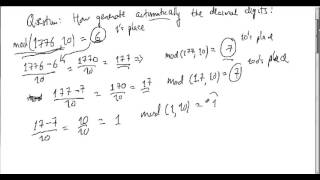 Question: How generate automatically the decimal digits?
mod(1776, 10) = 6 1's place
1776-6/10 = 1770/10 = 177 ⇒ mod(177, 10) = 7 10's place
177-7/10 = 170/10 = 17 mod(17, 10) = 7 100's place
17-7/10 = 10/10 = 1 mod(1, 10) = 1